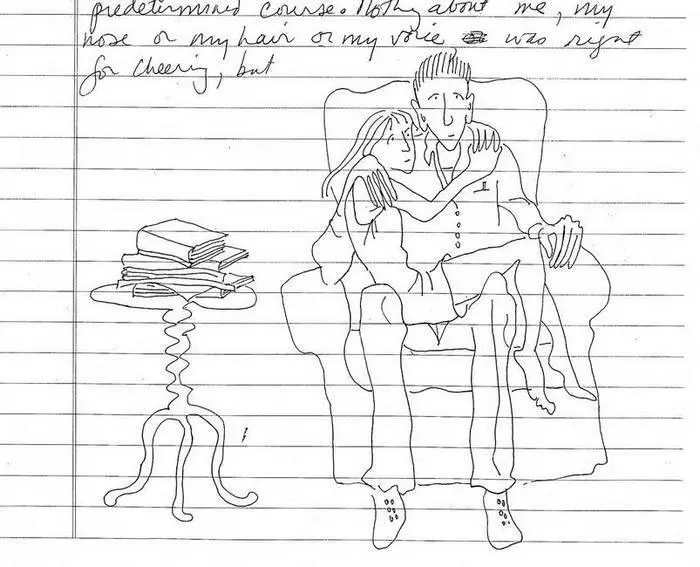 predetermined course. Nothing about me, my
nose or my hair or my voice was right
for cheering, but